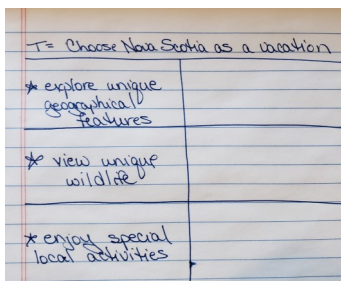 T= Choose Nova Scotia as a vacation
* explore unique
geographical
features
* view unique
wildlife
* enjoy special
local activities